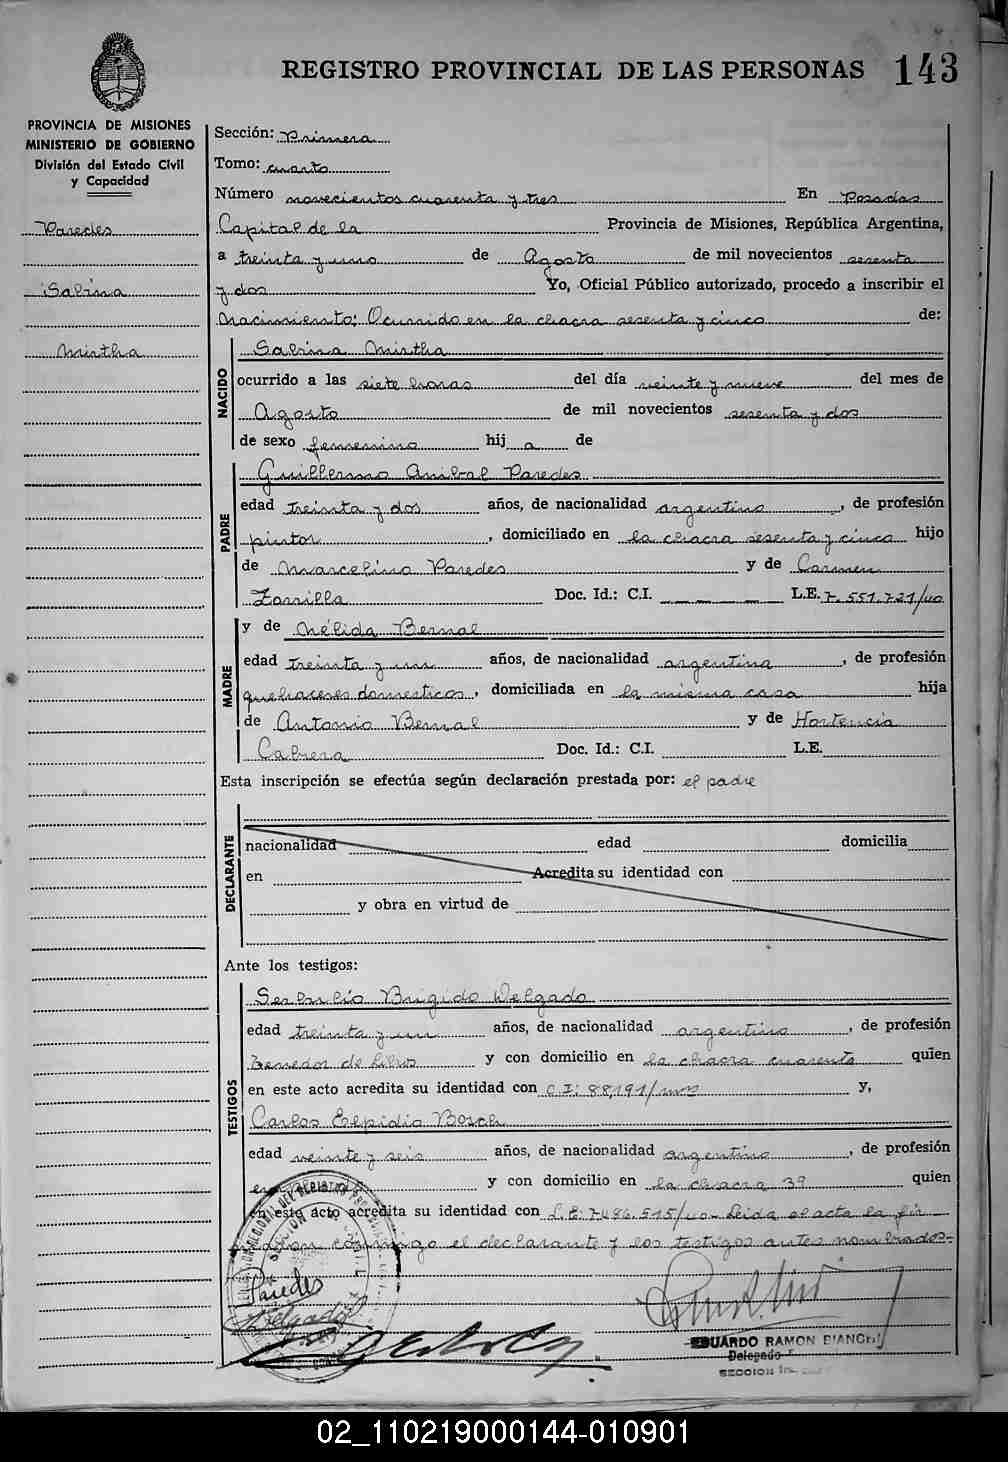 REGISTRO PROVINCIAL DE LAS PERSONAS 143
PROVINCIA DE MISIONES
MINISTERIO DE GOBIERNO
División del Estado Civil
y Capacidad
Paredes
Sabina
Mirtha
Sección: Primera
Tomo: cuarto
Número novecientos cuarenta y tres En Posadas
Capital de la Provincia de Misiones, República Argentina,
a treinta y uno de Agosto de mil novecientos sesenta
y dos Yo, Oficial Público autorizado, procedo a inscribir el
Nacimiento: Ocurrido en la chacra sesenta y cinco de:
NACIDO
Sabina Mirtha
ocurrido a las siete horas del día veinte y nueve del mes de
Agosto de mil novecientos sesenta y dos
de sexo femenino hij a de
PADRE
Guillermo Anibal Paredes
edad treinta y dos años, de nacionalidad argentino, de profesión
pintor, domiciliado en la chacra sesenta y cinco hijo
de Marcelino Paredes y de Carmen
Zorrilla Doc. Id.: C.I. — — — — L.E. 7.551.721/
MADRE
y de Nélida Bernal
edad treinta y un años, de nacionalidad argentina, de profesión
quehaceres domesticos, domiciliada en la misma casa hija
de Antonio Bernal y de Hortencia
Cabrera Doc. Id.: C.I. L.E.
Esta inscripción se efectúa según declaración prestada por: el padre
DECLARANTE
nacionalidad edad domicilia
en Acredita su identidad con
y obra en virtud de
Ante los testigos:
TESTIGOS
Brigido Delgado
edad treinta y un años, de nacionalidad argentino, de profesión
tenedor de libros y con domicilio en la chacra cuarenta quien
en este acto acredita su identidad con C.I: 88,191/ y,
Carlos Elpidio Bosch
edad veinte y seis años, de nacionalidad argentino, de profesión
y con domicilio en la chacra 39 quien
en este acto acredita su identidad con L.E: 7486.515/ Leida el acta la fir
conmigo el declarante y los testigos antes nombrados-
Paredes
Delgado
EDUARDO RAMON BIANCHI
Delegado
SECCION
02_110219000144-010901